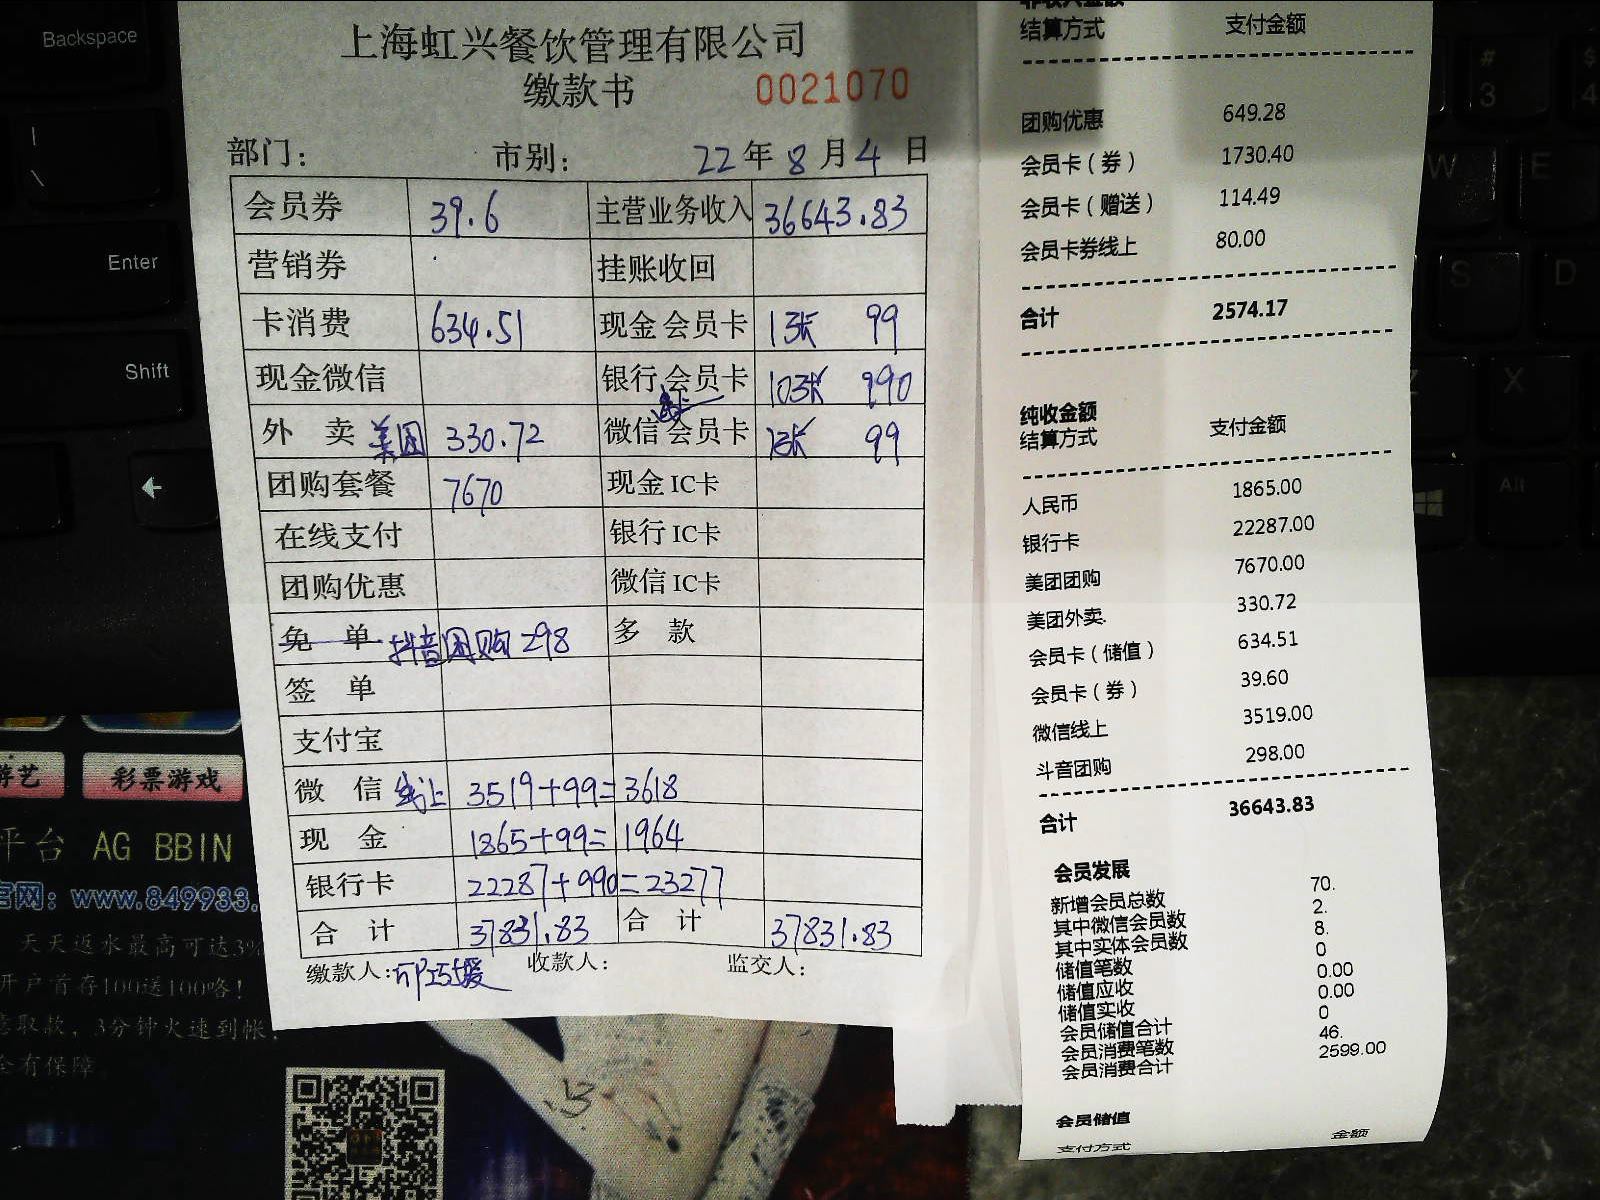 Backspace
Enter
Shift
上海虹兴餐饮管理有限公司
缴款书 0021070
部门: 市别: 22年8月4日
会员券 39.6 主营业务收入 36643.83
营销券 挂账收回
卡消费 634.51 现金会员卡 1张 99
现金微信 银行会员卡 10张 990
外 卖 美团 330.72 微信会员卡 1张 99
团购套餐 7670 现金IC卡
在线支付 银行IC卡
团购优惠 微信IC卡
免 单 抖音团购 298 多 款
签 单
支付宝
微 信 线上 3519+99=3618
现 金 1865+99=1964
银行卡 22287+990=23277
合 计 37831.83 合 计 37831.83
缴款人: 收款人: 监交人:
结算方式 支付金额
团购优惠 649.28
会员卡(券) 1730.40
会员卡(赠送) 114.49
会员卡券线上 80.00
合计 2574.17
纯收金额
结算方式 支付金额
人民币 1865.00
银行卡 22287.00
美团团购 7670.00
美团外卖. 330.72
会员卡(储值) 634.51
会员卡(券) 39.60
微信线上 3519.00
斗音团购 298.00
合计 36643.83
会员发展
新增会员总数 70.
其中微信会员数 2.
其中实体会员数 8.
储值笔数 0
储值应收 0.00
储值实收 0.00
会员储值合计 0
会员消费笔数 46.
会员消费合计 2599.00
会员储值
支付方式 金额
# 3
$ 4
W E
S D
X
Alt
游艺 彩票游戏
平台 AG BBIN
官网: www.849933.
天天返水最高可达3%
开户首存100送100咯!
意取款, 3分钟火速到帐,
全有保障